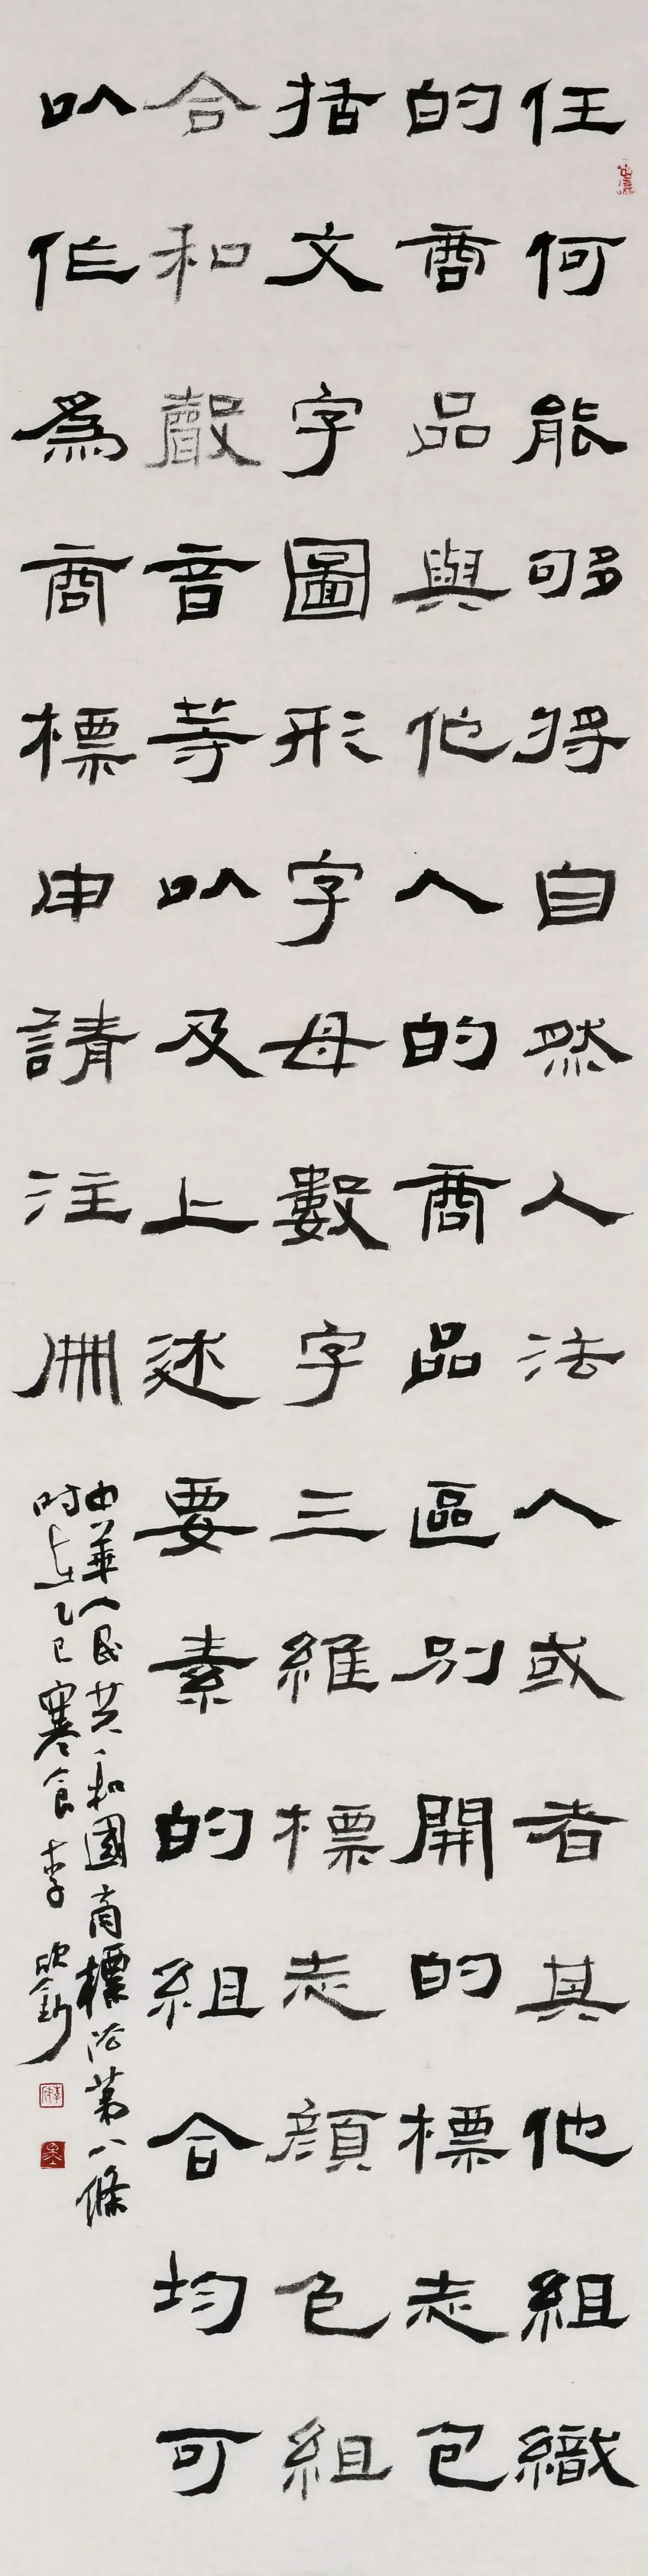 任何能够将自然人法人或者其他組織
的商品與他人的商品區別開的標志包
括文字圖形字母數字三維標志顏色組
合和聲音等以及上述要素的組合均可
以作爲商標申請注冊
中華人民共和國商標法第八條
时在乙巳寒食李